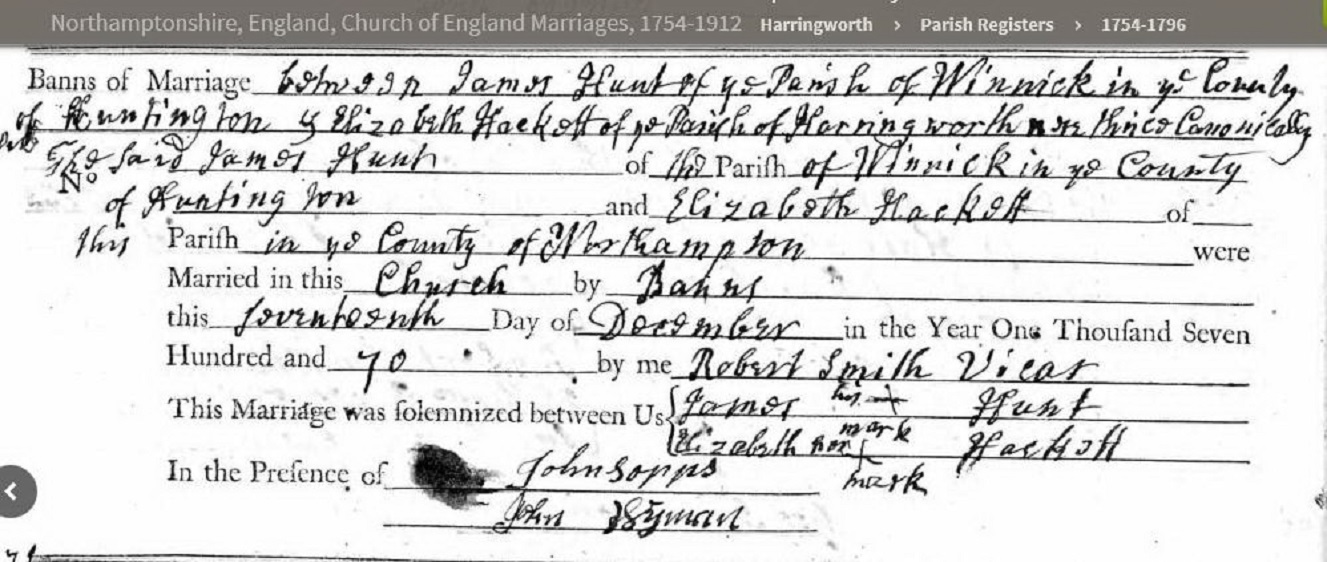 Northamptonshire, England, Church of England Marriages, 1754-1912 Harringworth > Parish Registers > 1754-1796
Banns of Marriage between James Hunt of ye Parish of Winnick in ye County
of Huntington & Elizabeth Hackett of ye Parish of Harringworth were thrice Canonically
The said James Hunt of the Parish of Winnick in ye County
No
of Huntington and Elizabeth Hackett of
this Parish in ye County of Northampton were
Married in this Church by Banns
this seventeenth Day of December in the Year One Thousand Seven
Hundred and 70 by me Robert Smith Vicar
This Marriage was solemnized between Us James his mark Hunt
Elizabeth her mark Hackett
In the Presence of John Sopps
John Wyman